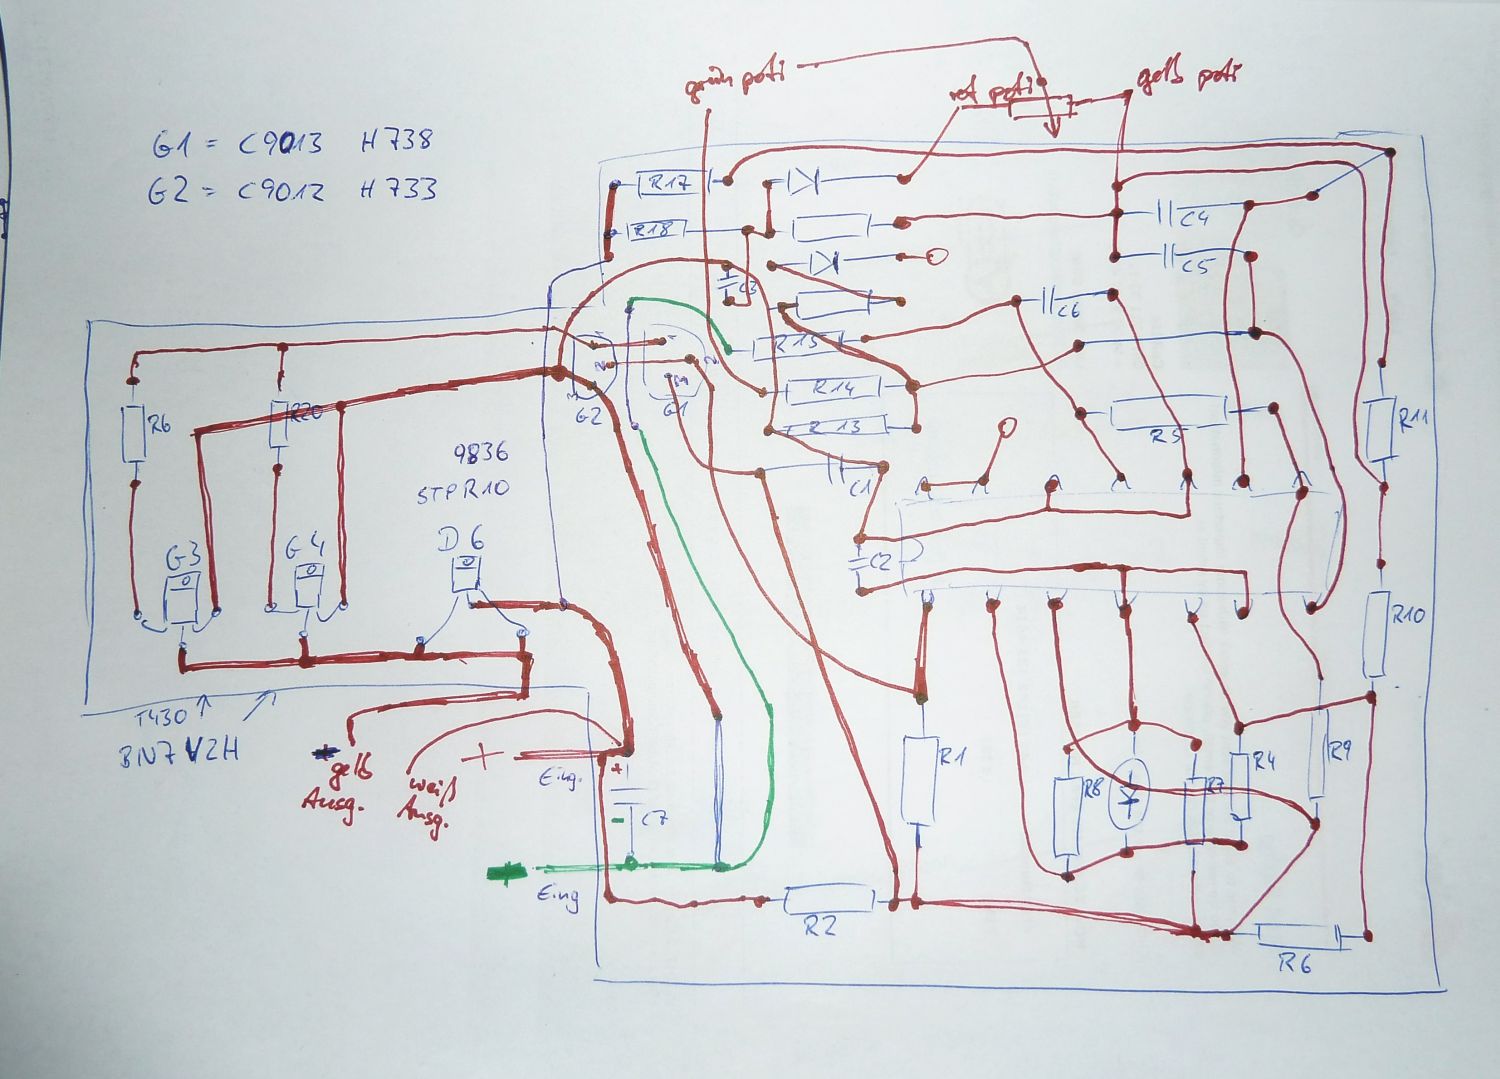 grün poti
rot poti
gelb poti
G1 = C9013 H738
G2 = C9012 H733
R17
R18
C4
C5
C3
C6
R15
R14
R13
R5
C1
C2
1
2
3
G2
1
2
3
G1
R6
R20
9836
STPR10
G3
G4
D6
R11
R10
T430
BN7V2H
+
gelb
Ausg.
weiß
Ausg.
+
Eing.
+
-
C7
Eing
R1
R8
R7
R4
R9
R2
R6